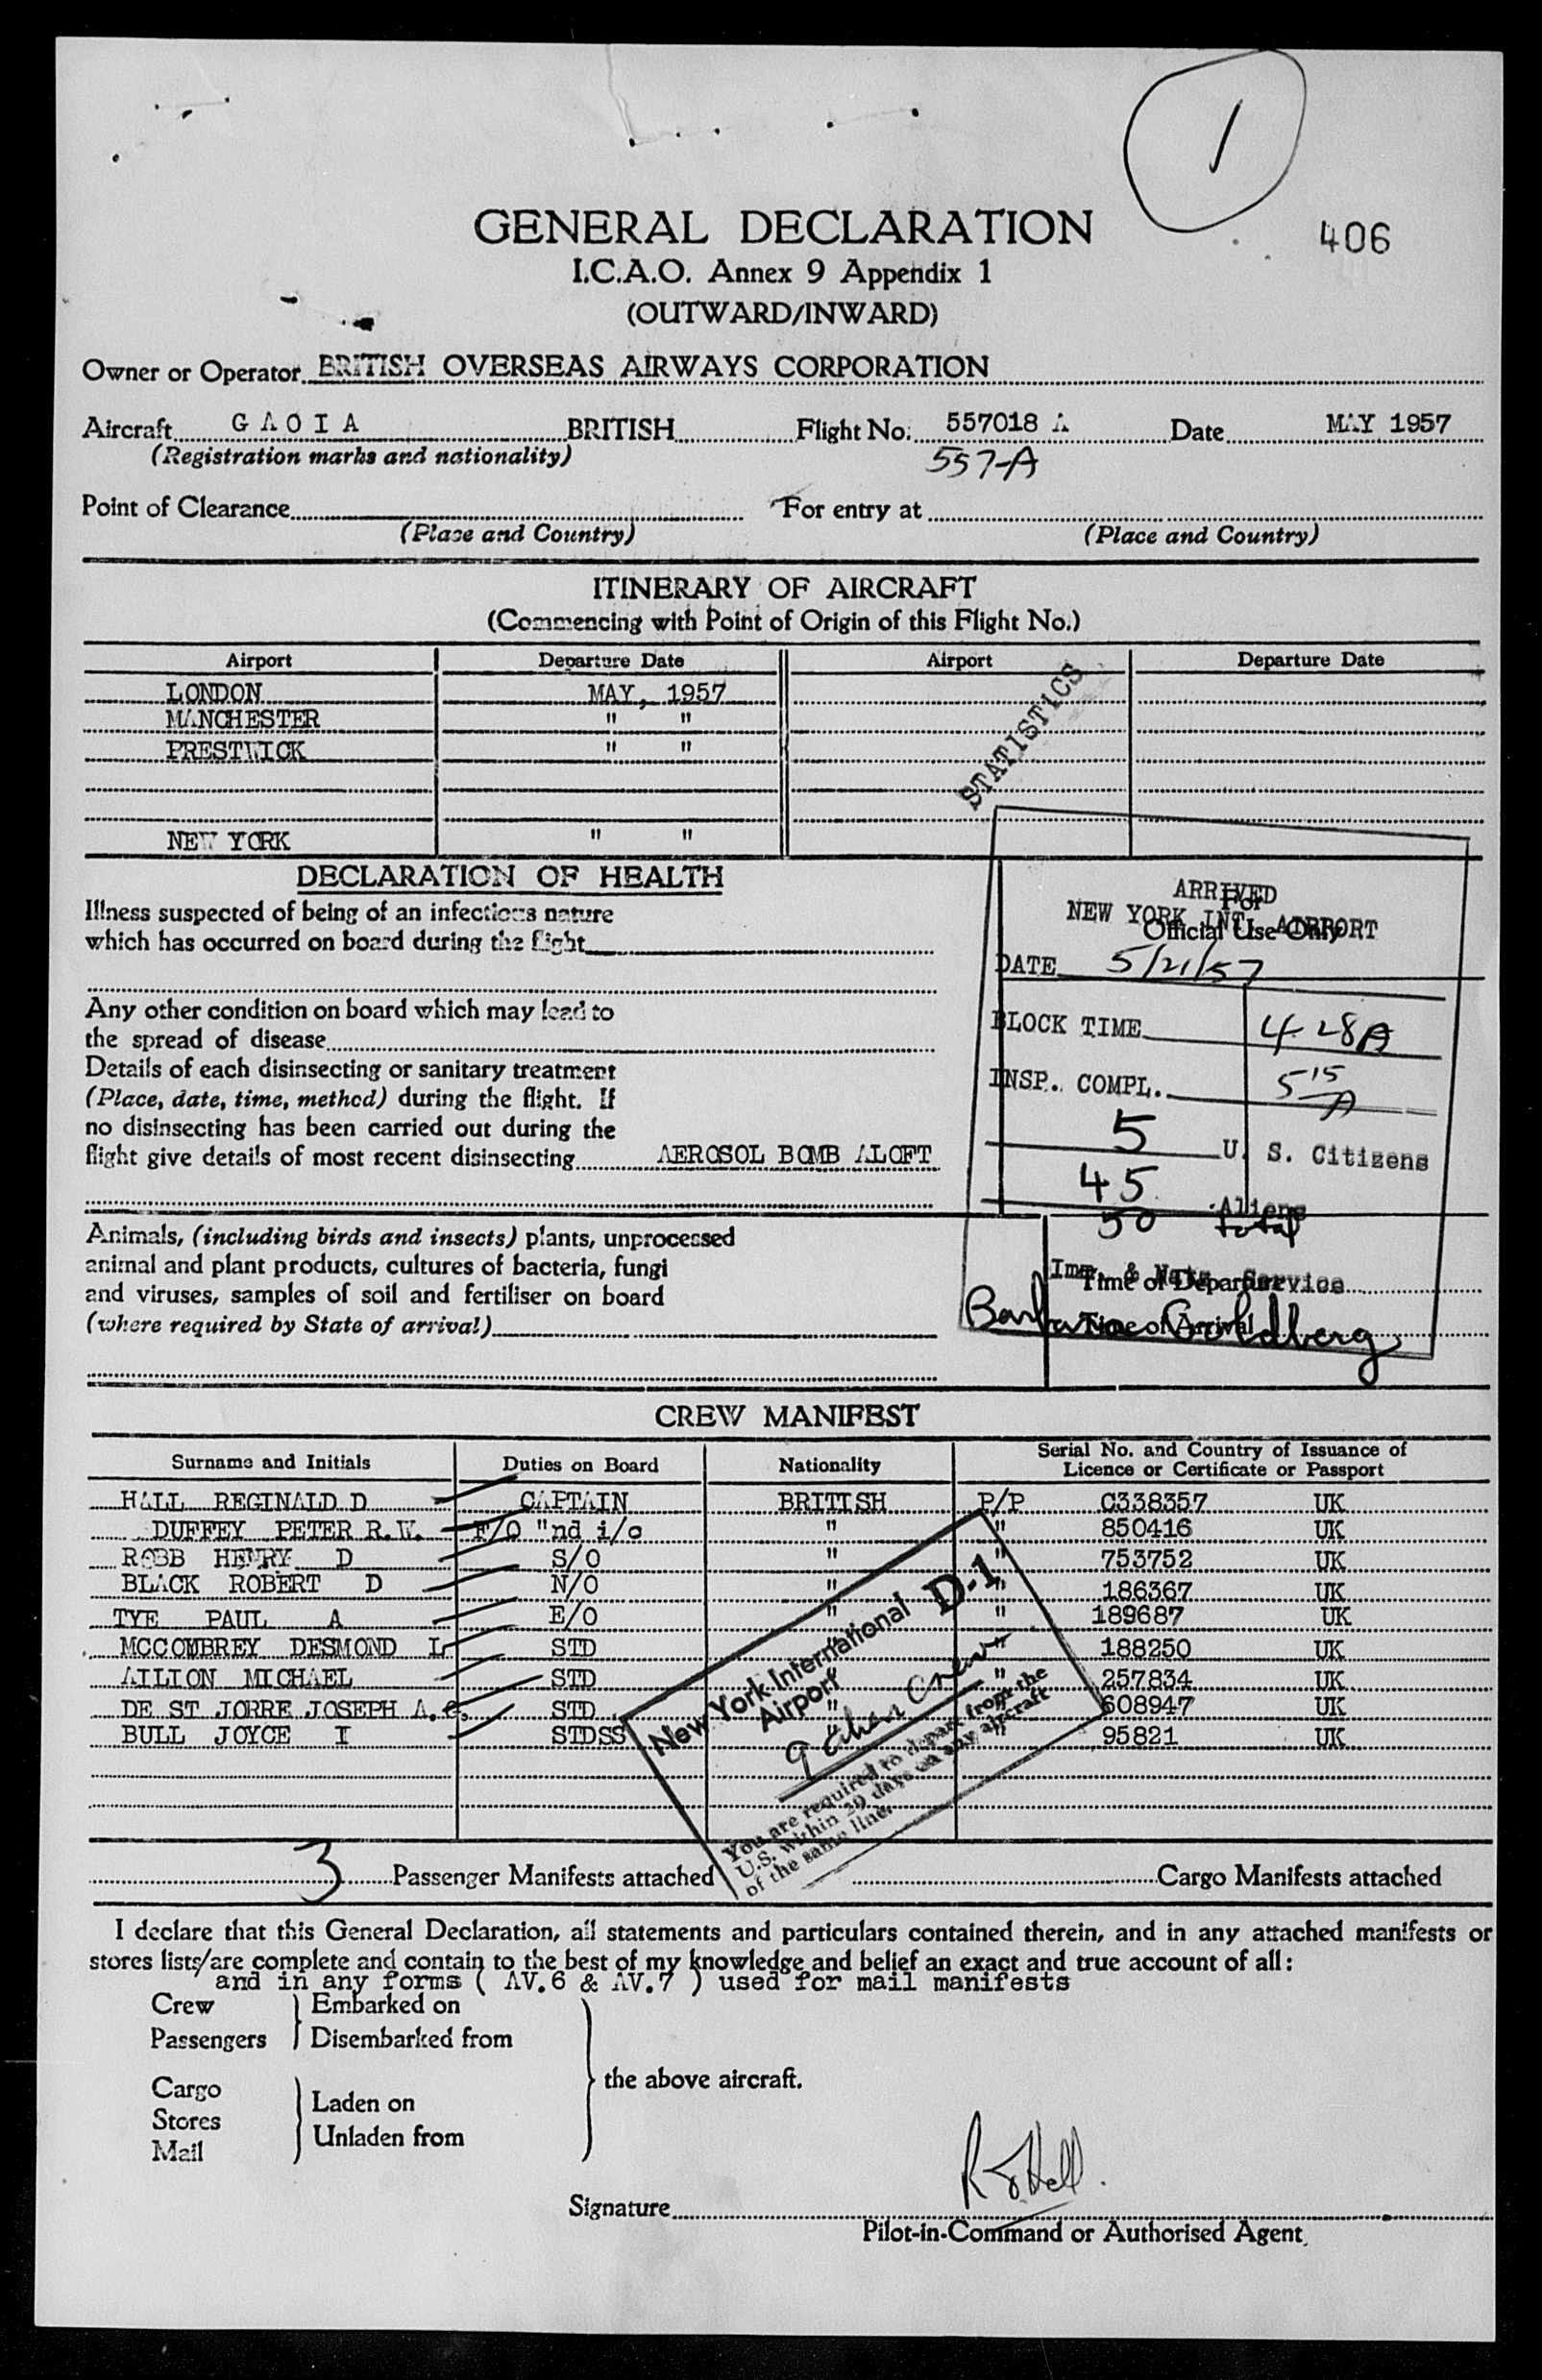 1
GENERAL DECLARATION
406
I.C.A.O. Annex 9 Appendix 1
(OUTWARD/INWARD)
Owner or Operator BRITISH OVERSEAS AIRWAYS CORPORATION
Aircraft G A O I A BRITISH Flight No. 557018 A Date MAY 1957
(Registration marks and nationality) 557-A
Point of Clearance For entry at
(Place and Country) (Place and Country)
ITINERARY OF AIRCRAFT
(Commencing with Point of Origin of this Flight No.)
Airport Departure Date Airport Departure Date
LONDON MAY, 1957
MANCHESTER " "
PRESTWICK " "
STATISTICS
NEW YORK " "
DECLARATION OF HEALTH
Illness suspected of being of an infectious nature
which has occurred on board during the flight
Any other condition on board which may lead to
the spread of disease
Details of each disinsecting or sanitary treatment
(Place, date, time, method) during the flight. If
no disinsecting has been carried out during the
flight give details of most recent disinsecting AEROSOL BOMB ALOFT
For
Official Use Only
ARRIVED
NEW YORK INT'L AIRPORT
DATE 5/21/57
BLOCK TIME 4 28A
INSP. COMPL. 5 15 A
5 U. S. Citizens
45 Aliens
50 total
Imm. & Natz. Service
Barbara Goldberg
Animals, (including birds and insects) plants, unprocessed
animal and plant products, cultures of bacteria, fungi
and viruses, samples of soil and fertiliser on board
(where required by State of arrival)
Time of Departure
Time of Arrival
CREW MANIFEST
Surname and Initials Duties on Board Nationality Serial No. and Country of Issuance of
Licence or Certificate or Passport
HALL REGINALD D CAPTAIN BRITISH P/P C338357 UK
DUFFEY PETER R.W. F/O "nd i/c " " 850416 UK
ROBB HENRY D S/O " " 753752 UK
BLACK ROBERT D N/O " " 186367 UK
TYE PAUL A E/O " " 189687 UK
MCCOMBREY DESMOND L STD " " 188250 UK
AILION MICHAEL STD " " 257834 UK
DE ST JORRE JOSEPH A.C. STD " " 608947 UK
BULL JOYCE I STDSS " " 95821 UK
New York International D-1
Airport
9 alien Crew
You are required to depart from the
U.S. within 29 days on any aircraft
of the same line.
3 Passenger Manifests attached Cargo Manifests attached
I declare that this General Declaration, all statements and particulars contained therein, and in any attached manifests or
stores lists/are complete and contain to the best of my knowledge and belief an exact and true account of all:
and in any forms ( AV.6 & AV.7 ) used for mail manifests
Crew Embarked on
Passengers Disembarked from
the above aircraft.
Cargo
Stores Laden on
Mail Unladen from
R D Hall.
Signature
Pilot-in-Command or Authorised Agent.